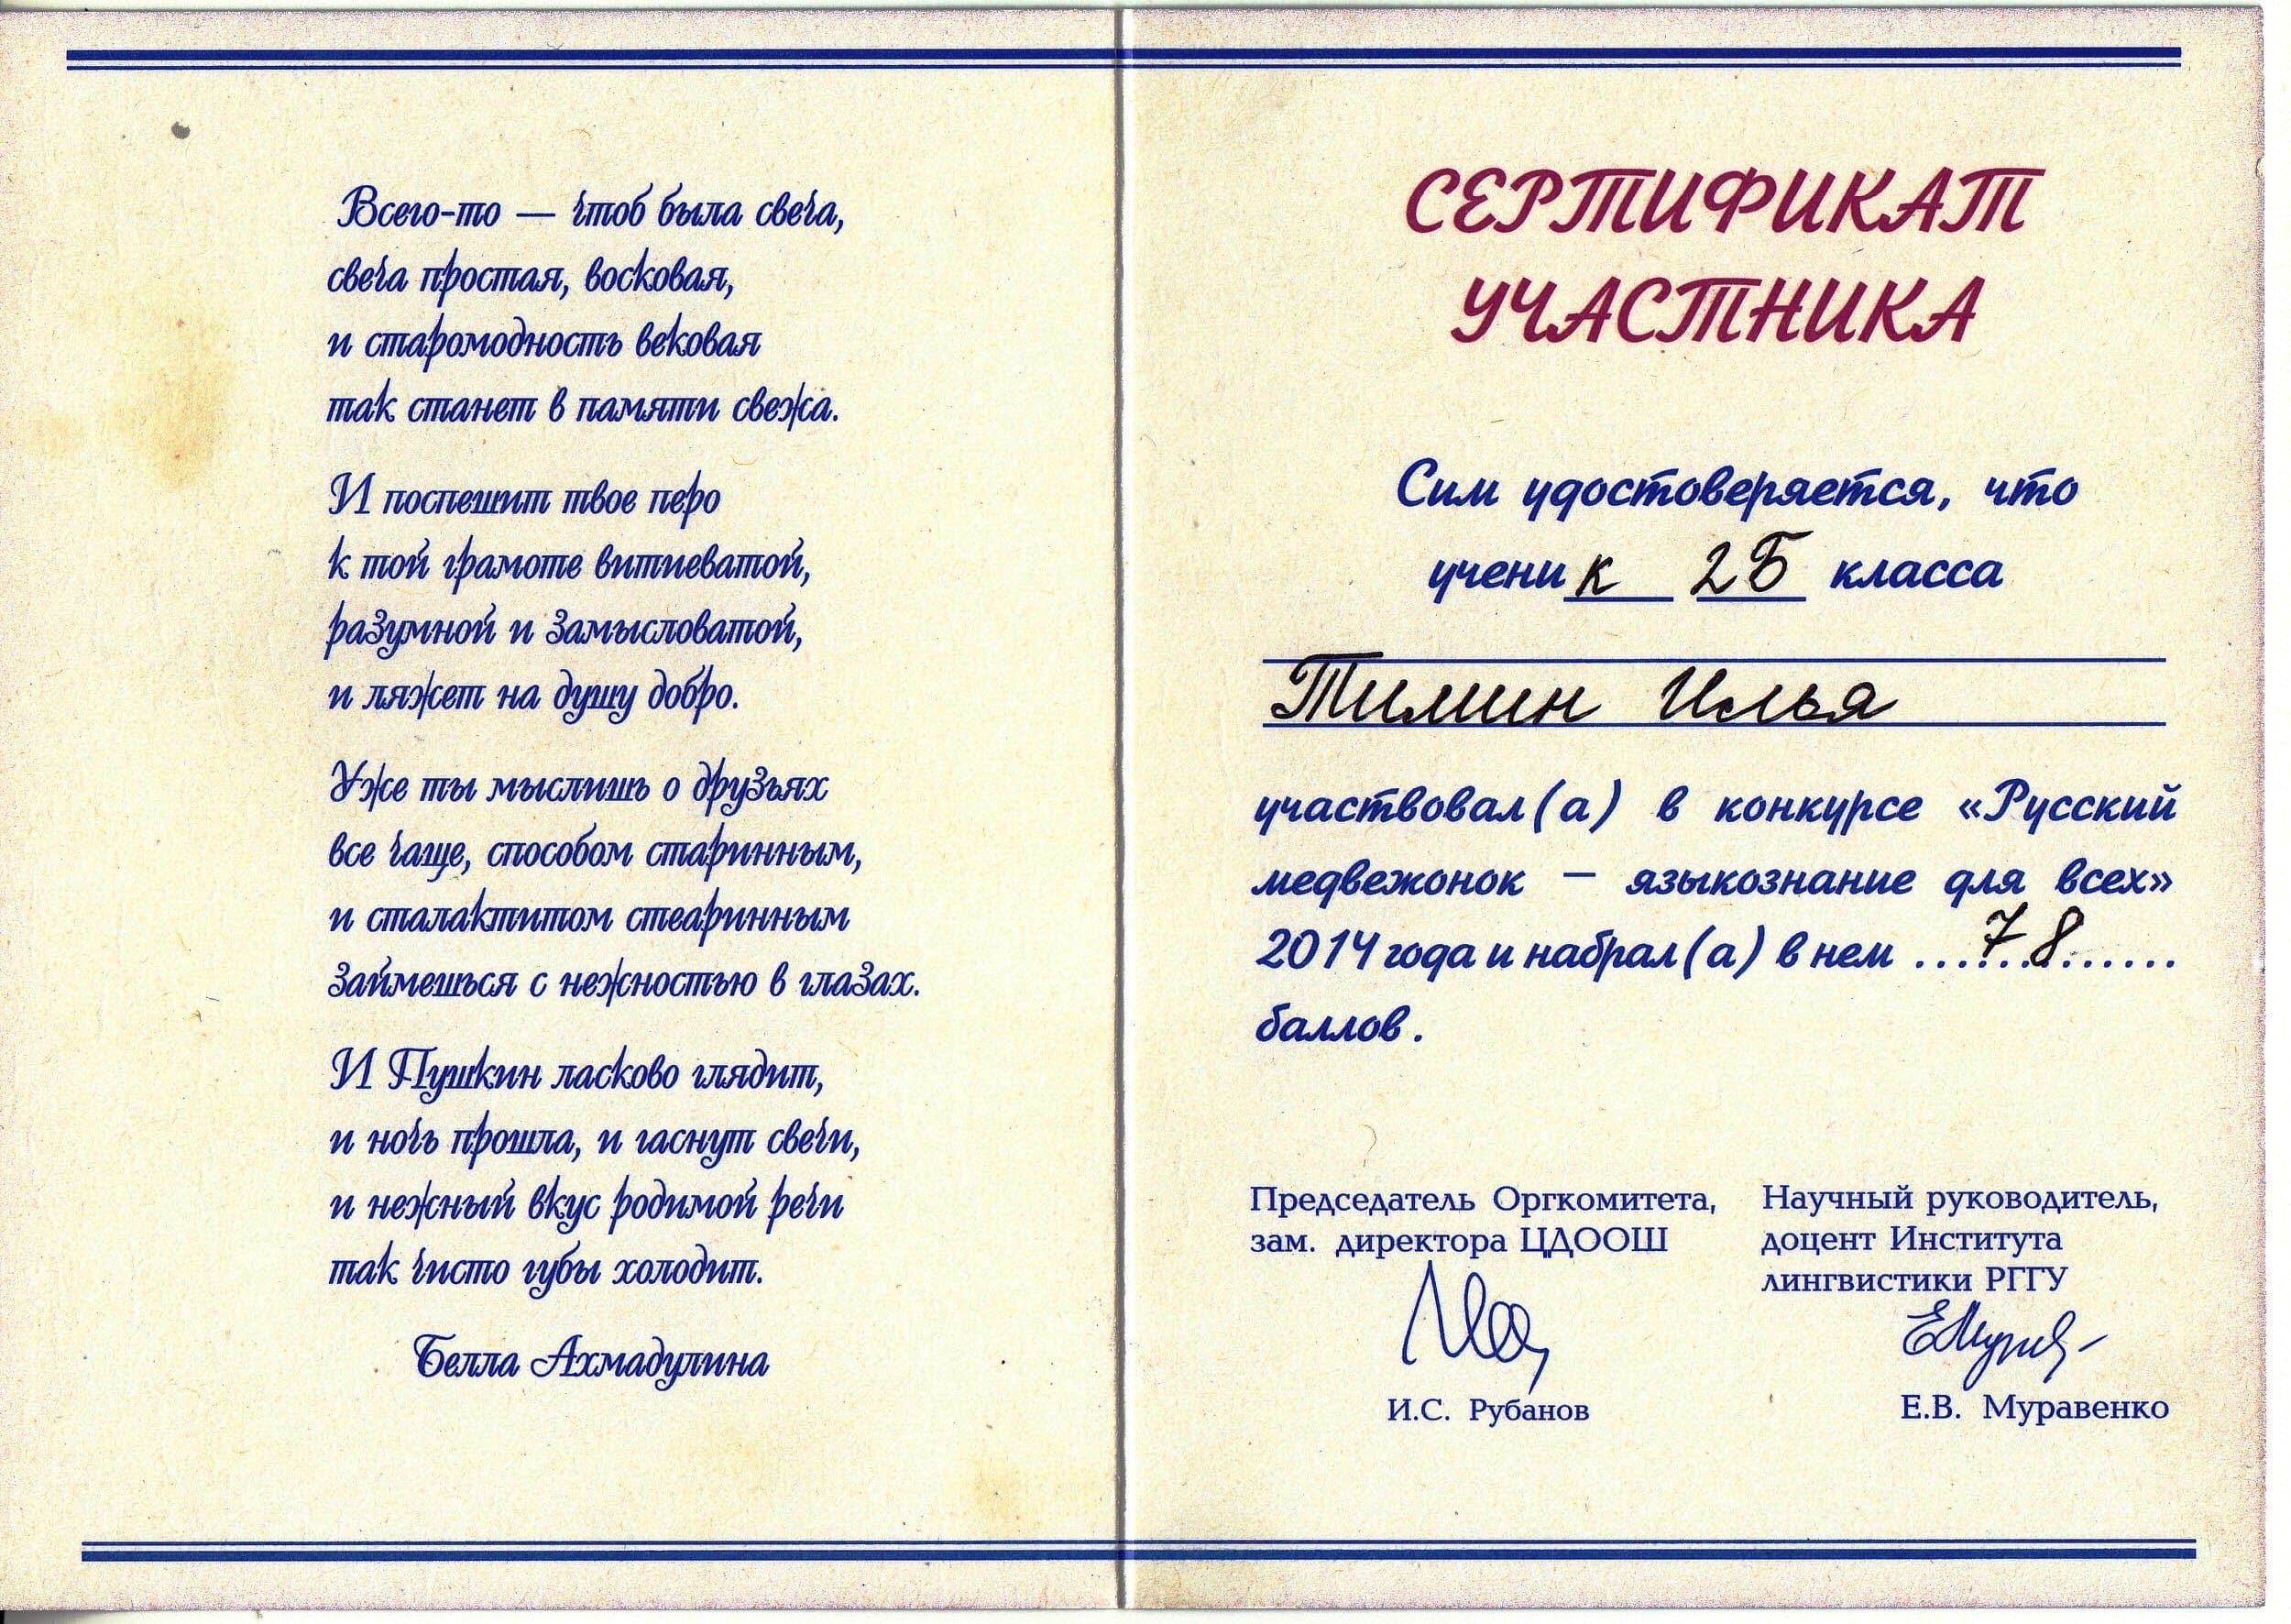 Всего-то — чтоб была свеча,
свеча простая, восковая,
и старомодность вековая
так станет в памяти свежа.
И поспешит твое перо
к той грамоте витиеватой,
разумной и замысловатой,
и ляжет на душу добро.
Уже ты мыслишь о друзьях
все чаще, способом старинным,
и сталактитом стеаринным
займешься с нежностью в глазах.
И Пушкин ласково глядит,
и ночь прошла, и гаснут свечи,
и нежный вкус родимой речи
так чисто губы холодит.
Белла Ахмадулина
СЕРТИФИКАТ
УЧАСТНИКА
Сим удостоверяется, что
ученик 2Б класса
Тимин Илья
участвовал(а) в конкурсе «Русский
медвежонок – языкознание для всех»
2014 года и набрал(а) в нем ...78......
баллов.
Председатель Оргкомитета,
зам. директора ЦДООШ
И.С. Рубанов
Научный руководитель,
доцент Института
лингвистики РГГУ
Е.В. Муравенко